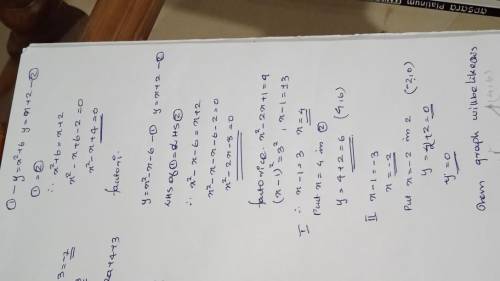 ① - y = x²+6  y = x+2 - ②
① = ②
∴ x²+6 = x+2
x²-x+6-2=0
x²-x+4=0
factori.
y = x²-x-6 - ①  y = x+2 - ②
LHS of ① = LHS ②
∴ x²-x-6 = x+2
x²-x-x-6-2=0
x²-2x-8=0
factorise. x²-2x+1=9
(x-1)² = 3², x-1 = ±3
I ∴ x-1 = 3  x = 4
Put x = 4 in ②
y = 4+2 = 6  (4,6)
II x-1 = -3
x = -2
Put x = -2 in 2  (-2,0)
y = -2+2 = 0
y = 0
graph will be like this
3 = -7
2a+4+3
ansara Platinum